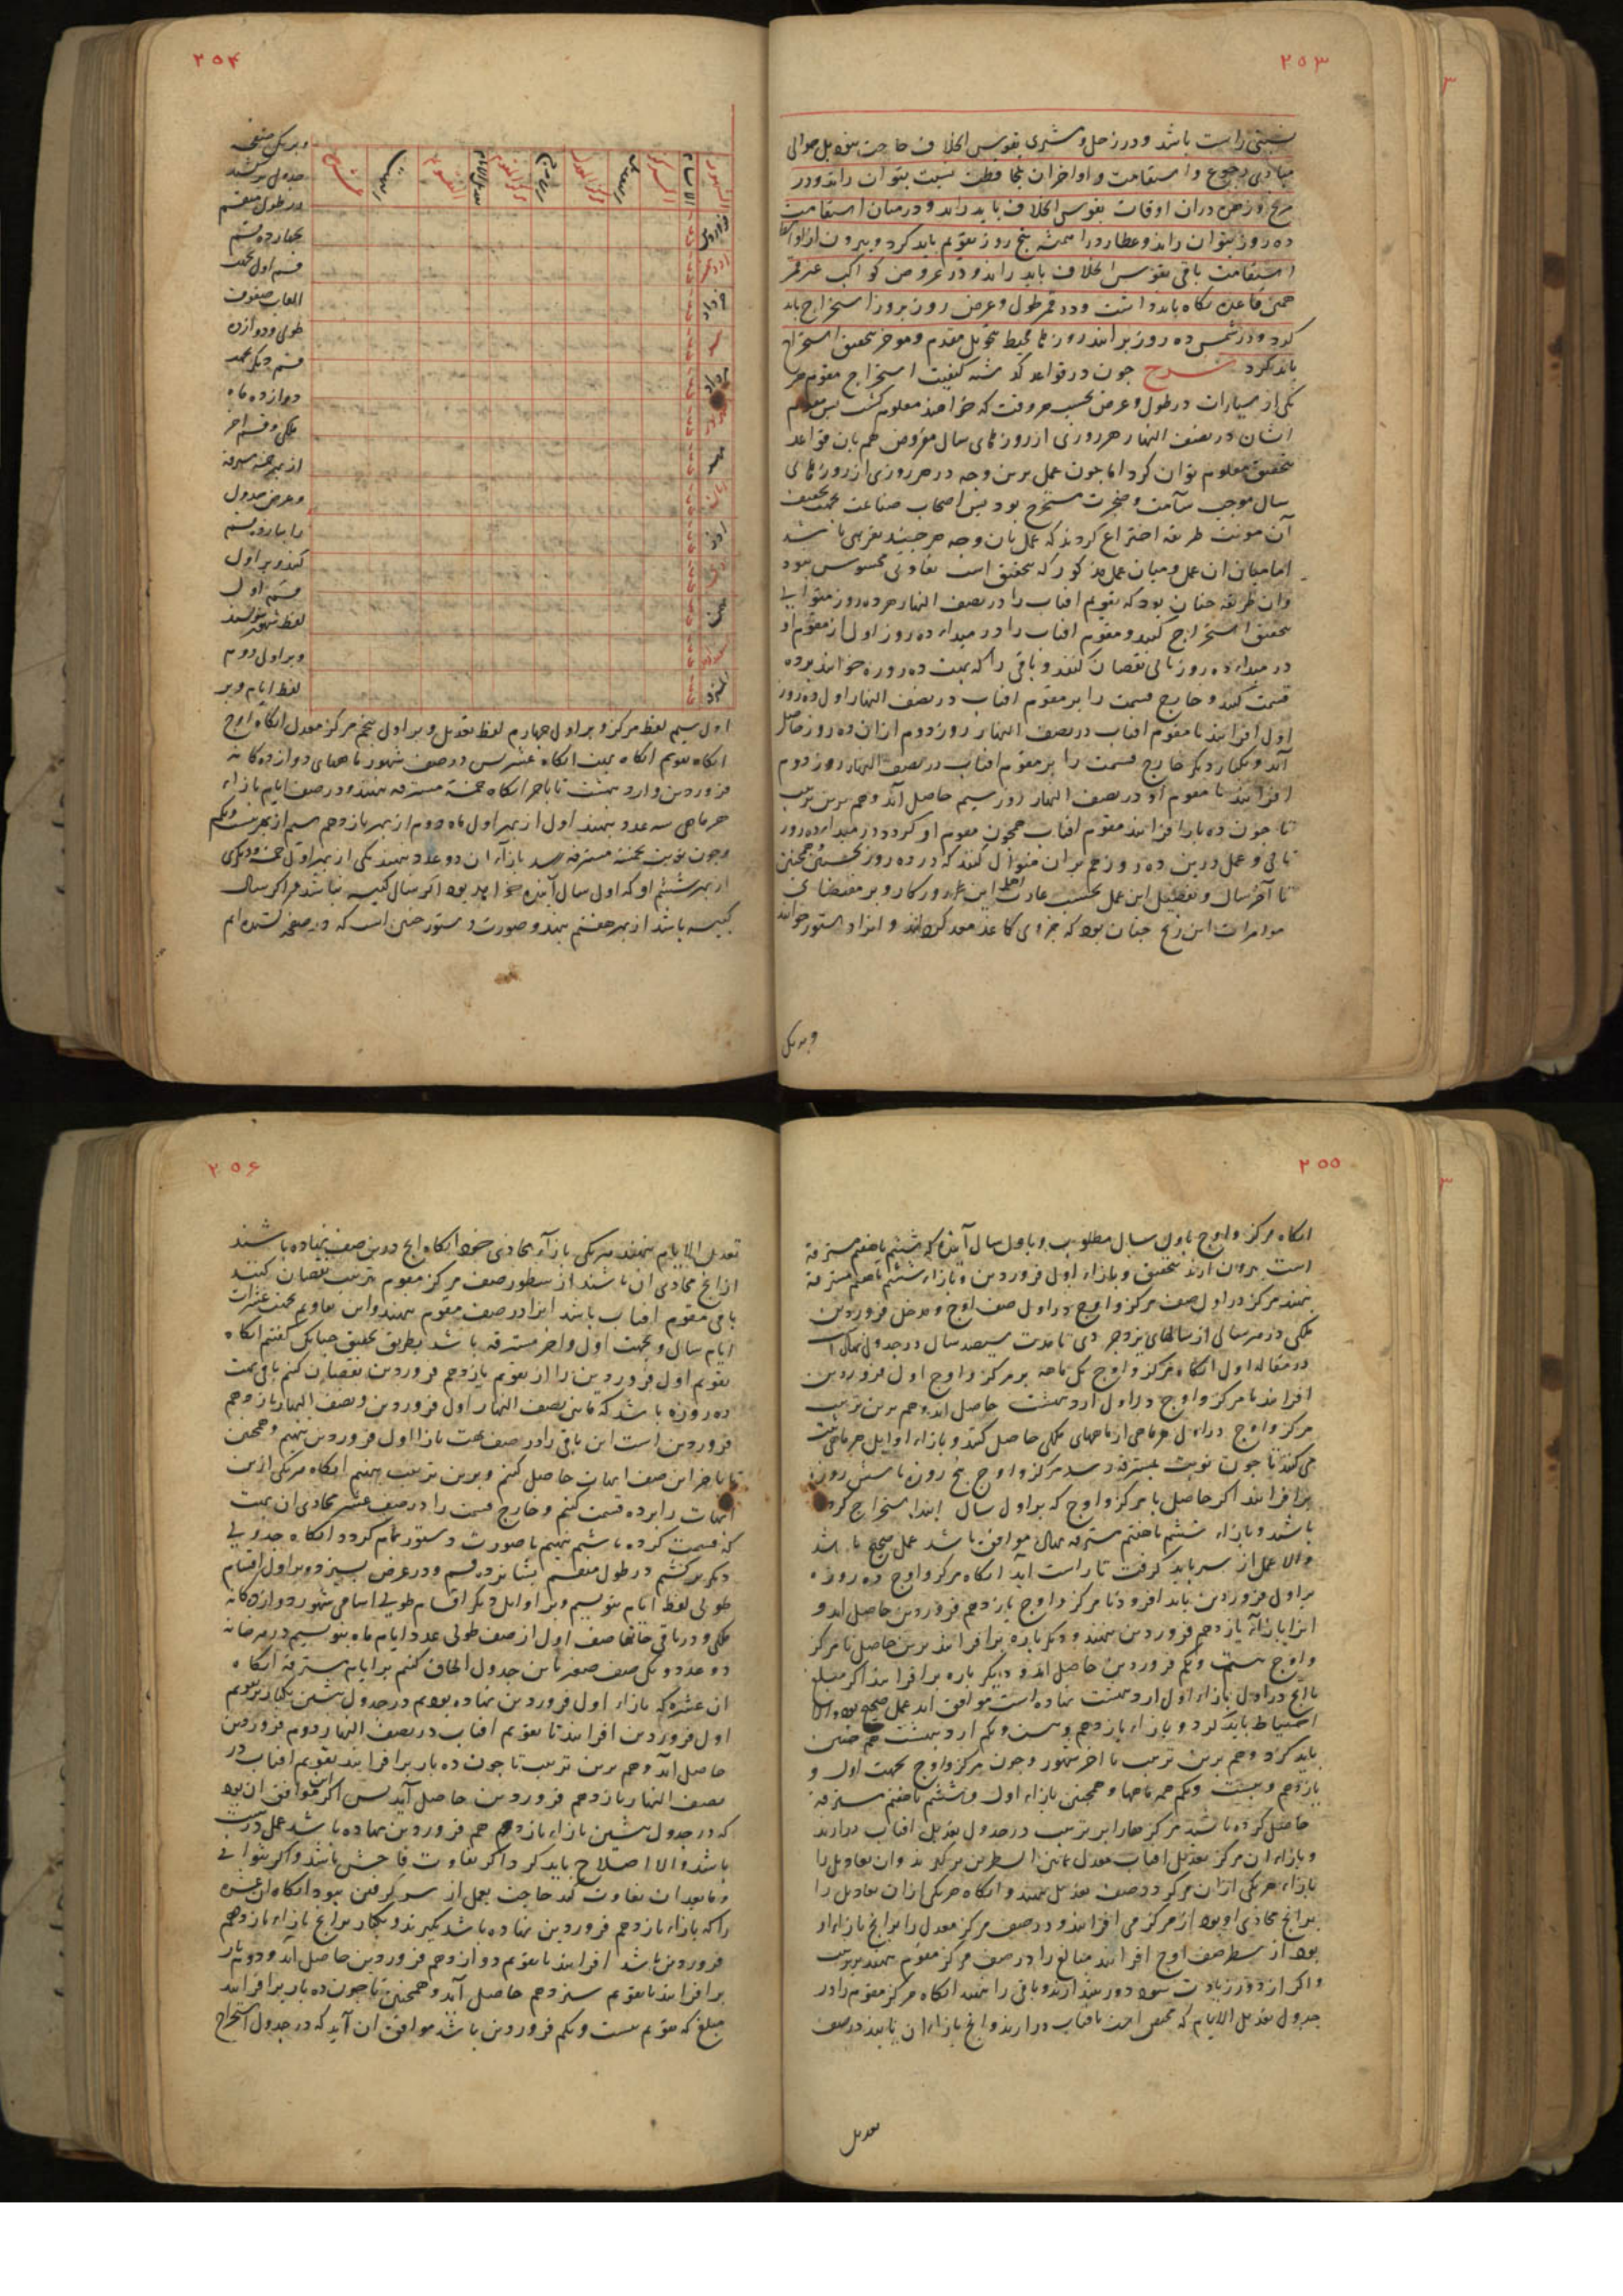 ۲۵۳
نسبتی راست باشد و در زحل و مشتری بقوس الخلاف حاجت نبود بل حوالی
مبادی رجوع و استقامت و اواخر آن بمحافظت نسبت بتوان راند و در
مریخ و زهره دران اوقات بقوس الخلاف باید راند و در میان استقامت
ده روز بتوان راند و عطارد را همیشه پنج روز تقویم باید کرد و بیرون از اواسط
استقامت باقی بقوس الخلاف باید راند و در عروض کواکب غیر قمر
همین قاعده نگاه باید داشت و در قمر طول و عرض روز بروز استخراج باید
کرد و در شمس ده روز برانند روزهای محیط تحویل مقدم و موخر بتحقیق استخراج
باید کرد شرح چون در قواعد گذشته کیفیت استخراج مقوم هر
یکی از سیارات در طول و عرض بحسب هر وقت که خواهند معلوم گشت پس مقوم
ایشان در نصف النهار هر روزی از روزهای سال مفروض هم بآن قواعد
بتحقیق معلوم توان کرد اما چون عمل برین وجه در هر روزی از روزهای
سال موجب سآمت و ضجرت مستخرج بود پس اصحاب صناعت بجهت تخفیف
آن مونت طریقه اختراع کردند که عمل بآن وجه هر چند تقریبی باشد
اما میان آن عمل و میان عمل مذکور که بتحقیق است تفاوتی محسوس نبود
و آن طریقه چنان بود که تقویم افتاب را در نصف النهار هر ده روز متوالی
بتحقیق استخراج کنند و مقوم افتاب را در مبداء ده روز اول از مقوم او
در مبداء ده روز تالی نقصان کنند و باقی را که بهت ده روزه خوانند بر ده
قسمت کنند و خارج قسمت را بر مقوم افتاب در نصف النهار اول ده روز
اول افزایند تا مقوم افتاب در نصف النهار روز دوم ازان ده روز حاصل
آید و یکبار دیگر خارج قسمت را بر مقوم افتاب در نصف النهار روز دوم
افزایند تا مقوم او در نصف النهار روز سیم حاصل آید و هم برین ترتیب
تا چون ده بار افزایند مقوم افتاب همچون مقوم او گردد در مبداء ده روز
تالی و عمل درین ده روز هم بران منوال کنند که در ده روز نخستین و همچنین
تا آخر سال و تفصیل این عمل بحسب عادت اهل این روزکار و بر مقتضای
موامرات این زیج چنان بود که جزوی کاغذ معد کردانند و انرا دستور خوانند
و بر یکی
۲۵۴
و بر یکی صفحه
جدولی برکشند
در طول منقسم
بچهارده قسم
قسم اول بجهت
القاب صفوف
طولی و دوازده
قسم دیگر بجهت
دوازده ماه
ملکی و قسم اخر
از بهر خمسه مسترقه
و عرض جدول
را بیازده قسم
کنند و بر اول
قسم اول
لفظ شهور نویسند
و بر اول دوم
لفظ ایام و بر
الشهور
الایام
المرکز
التعدیل
مرکز المعدل
الاوج
مرکز المقوم
تعدیل الایام
التقویم
البهت
عشر
فروردین
خرداد
مرداد
اول سیم لفظ مرکز و بر اول چهارم لفظ تعدیل و بر اول پنجم مرکز معدل انکاه اوج
انکاه تقویم انکاه بهت انکاه عشر پس در صف شهور ماههای دوازده کانه
فروردین و اردیبهشت تا باخر انکاه خمسه مسترقه بنهند و در صف ایام بازاء
هر ماهی سه عدد بنهند اول از بهر اول ماه دوم از بهر یازدهم سیم از بهر بیست و یکم
و چون نوبت بخمسه مسترقه رسد بازاء آن دو عدد بنهند یکی از بهر اول خمسه و دیگری
از بهر ششم او که اول سال آینده خواهد بود اکر سال کبیسه نباشد و اکر سال
کبیسه باشد از بهر هفتم بنهند و صورت دستور چنین است که در صفحه کشیده ام
۲۵۵
انکاه مرکز و اوج باول سال مطلوب و باول سال آینده که ششم یا هفتم مسترقه
است بیرون آرند بتحقیق و بازاء اول فروردین و بازاء ششم یا هفتم مسترقه
بنهند مرکز در اول صف مرکز و اوج در اول صف اوج و مدخل فروردین
ملکی در هر سالی از سالهای یزدجردی تا مدت سیصد سال در جدولی
در مقاله اول انکاه مرکز و اوج یک ماهه بر مرکز و اوج اول فروردین
افزایند تا مرکز و اوج در اول اردیبهشت حاصل آید و هم برین ترتیب
مرکز و اوج در اوایل هر ماهی از ماههای ملکی حاصل کنند و بازاء اوایل هر ماهی ثبت
می کنند تا چون نوبت بمسترقه رسد مرکز و اوج پنج روزه یا شش روزه
بر افزایند اکر حاصل با مرکز و اوج که بر اول سال ابتدا استخراج کرده
باشد و بازاء ششم یا هفتم مسترقه نهاده موافق باشد عمل صحیح باشد
و الا عمل از سر باید کرفت تا راست آید انکاه مرکز و اوج ده روزه
بر اول فروردین باید افزود تا مرکز و اوج یازدهم فروردین حاصل آید و
انرا بازاء یازدهم فروردین بنهند و دیکر باره بر افزایند برین حاصل تا مرکز
و اوج بیست و یکم فروردین حاصل آید و دیگر باره بر افزایند اکر مبلغ
با آنچ در اول بازاء اول اردیبهشت نهاده است موافق آید عمل صحیح بود و الا
احتیاط باید کرد و بازاء یازدهم و بیست و یکم اردیبهشت هم چنین
باید کرد و هم برین ترتیب تا اخر شهور و چون مرکز و اوج بجهت اول و
یازدهم و بیست و یکم همه ماهها و همچنین بازاء اول و ششم یا هفتم مسترقه
حاصل کرده باشند مرکزها را بر ترتیب در جدول تعدیل افتاب درآرند
و بازاء آن مرکز تعدیل افتاب معدل بمابین السطرین برگیرند و آن تعادیل را
بازاء هر یکی ازان مرکز در صف تعدیل بنهند و انکاه هر یکی ازان تعادیل را
بر آنچ محاذی او بود از مرکز می افزایند و در صف مرکز معدل را بر آنچ بازاء او
بود از سطر صف اوج افزایند مبالغ را در صف مرکز مقوم بنهند بر ترتیب
و اکر از دور زیادت شود دور بیندازند و باقی را بنهند انکاه مرکز مقوم را در
جدول تعدیل الایام که مختص است بافتاب درآرند و آنچ بازاء آن یابند در صف
تعدیل
۲۵۶
تعدیل الایام بنهند هر یکی بازاء محاذی خود انکاه آنچ درین صف نهاده باشند
از آنچ محاذی آن باشد از سطور صف مرکز مقوم بترتیب نقصان کنند
باقی مقوم افتاب باشد انرا در صف مقوم بنهند و این تقاویم بجهت عشرات
ایام سال و بجهت اول و اخر مسترقه باشد بطریق تحقیق چنانک کفتیم انکاه
تقویم اول فروردین را از تقویم یازدهم فروردین نقصان کنیم باقی بهت
ده روزه باشد که مابین نصف النهار اول فروردین و نصف النهار یازدهم
فروردین است این باقی را در صف بهت بازاء اول فروردین بنهیم و همچنین
تا باخر این صف ابهات حاصل کنیم و برین ترتیب بنهیم انکاه هر یکی ازین
ابهات را بر ده قسمت کنیم و خارج قسمت را در صف عشر محاذی آن بهت
که قسمت کرده باشیم بنهیم تا صورت دستور تمام کردد انکاه جدولی
دیگر برکشیم در طول منقسم بشانزده قسم و در عرض بسیزده و بر اول اقسام
طولی لفظ ایام بنویسیم و بر اوایل دیگر اقسام طولی اسامی شهور دوازده کانه
ملکی و در باقی خانها صف اول از صف طولی عدد ایام ماه بنویسیم در هر خانه
دو عدد و یک صف صغیر باین جدول الحاق کنیم برای ایام مسترقه انکاه
آن عشر که بازاء اول فروردین نهاده بودیم در جدول پیشین یکبار بر تقویم
اول فروردین افزایند تا تقویم افتاب در نصف النهار دوم فروردین
حاصل آید و هم برین ترتیب تا چون ده بار بر افزایند تقویم افتاب در
نصف النهار یازدهم فروردین حاصل آید پس اکر این موافق آن بود
که در جدول پیشین بازاء یازدهم فروردین نهاده باشد عمل درست
باشد و الا اصلاح باید کرد و اکر تفاوت فاحش نباشد و اکر بثوانی
و مابعد آن تفاوت کند حاجت بعمل از سر کرفتن نبود انکاه آن عشر
را که بازاء یازدهم فروردین نهاده باشد بگیرند و یکبار بر آنچ بازاء یازدهم
فروردین باشد افزایند تا تقویم دوازدهم فروردین حاصل آید و دوم بار
بر افزایند تا تقویم سیزدهم حاصل آید و همچنین تا چون ده بار بر افزایند
مبلغ که تقویم بیست و یکم فروردین باشد موافق آن آید که در جدول استخراج